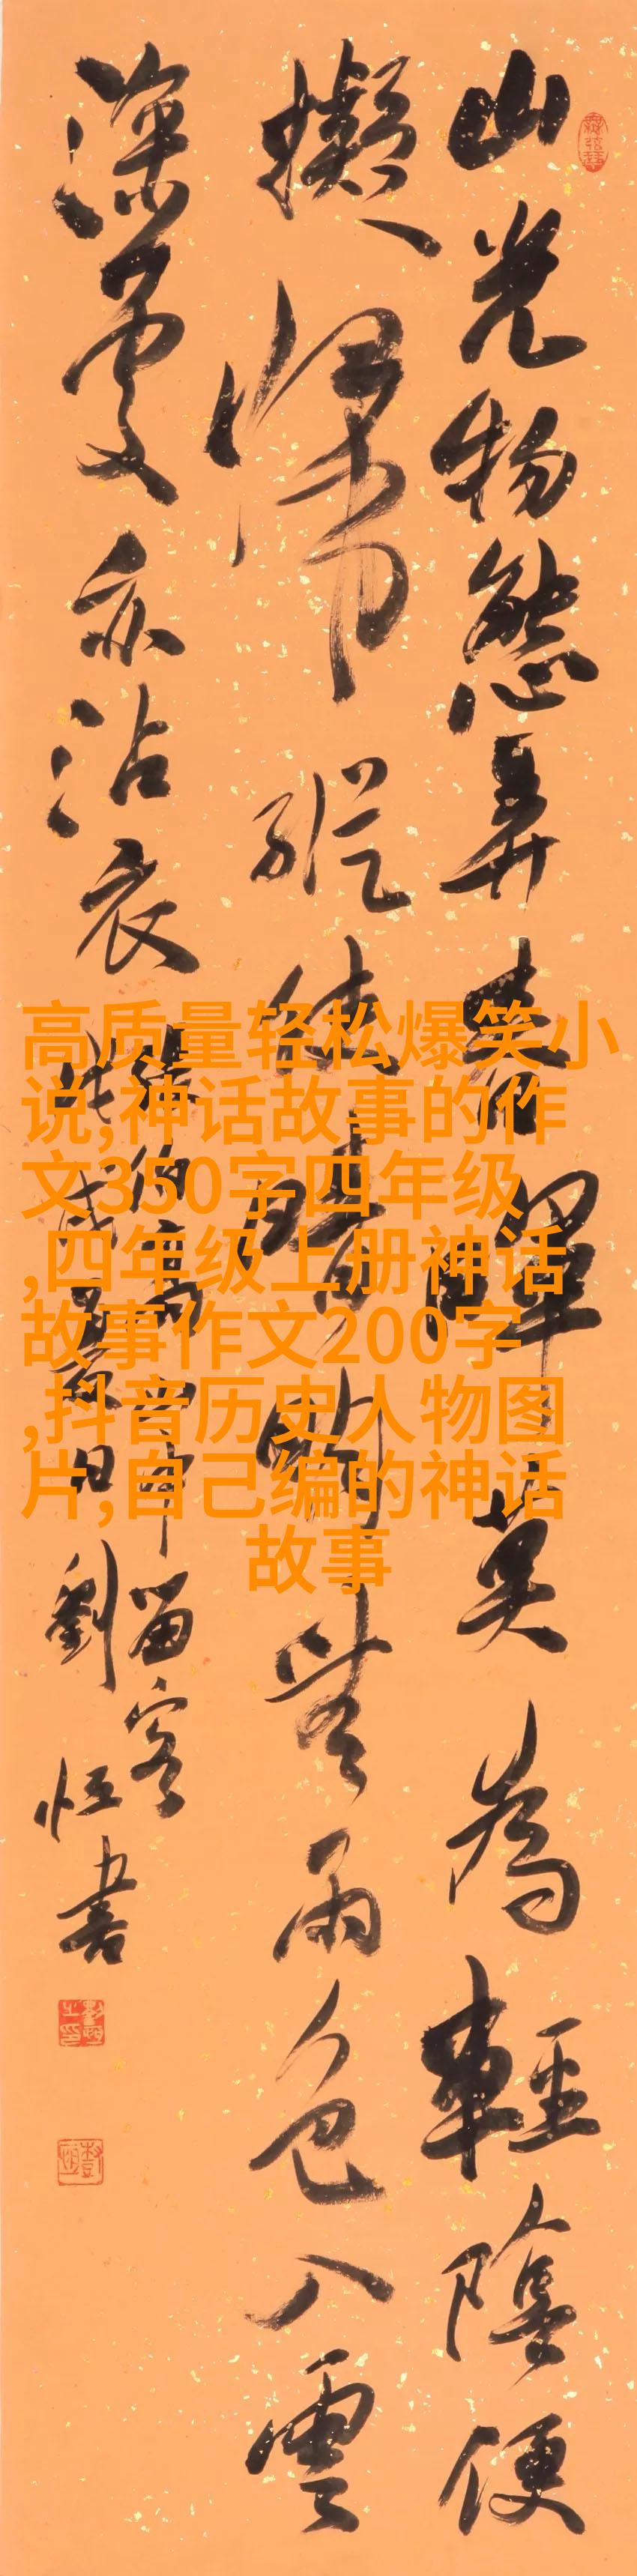 山光物態弄春暉莫為輕陰便
擬歸縱使晴明無雨色入雲
深處亦沾衣
張伯高山中留客
日劉恒書
高质量轻松爆笑小
说,神话故事的作
文350字四年级
,四年级上册神话
故事作文200字
,抖音历史人物图
片,自己编的神话
故事